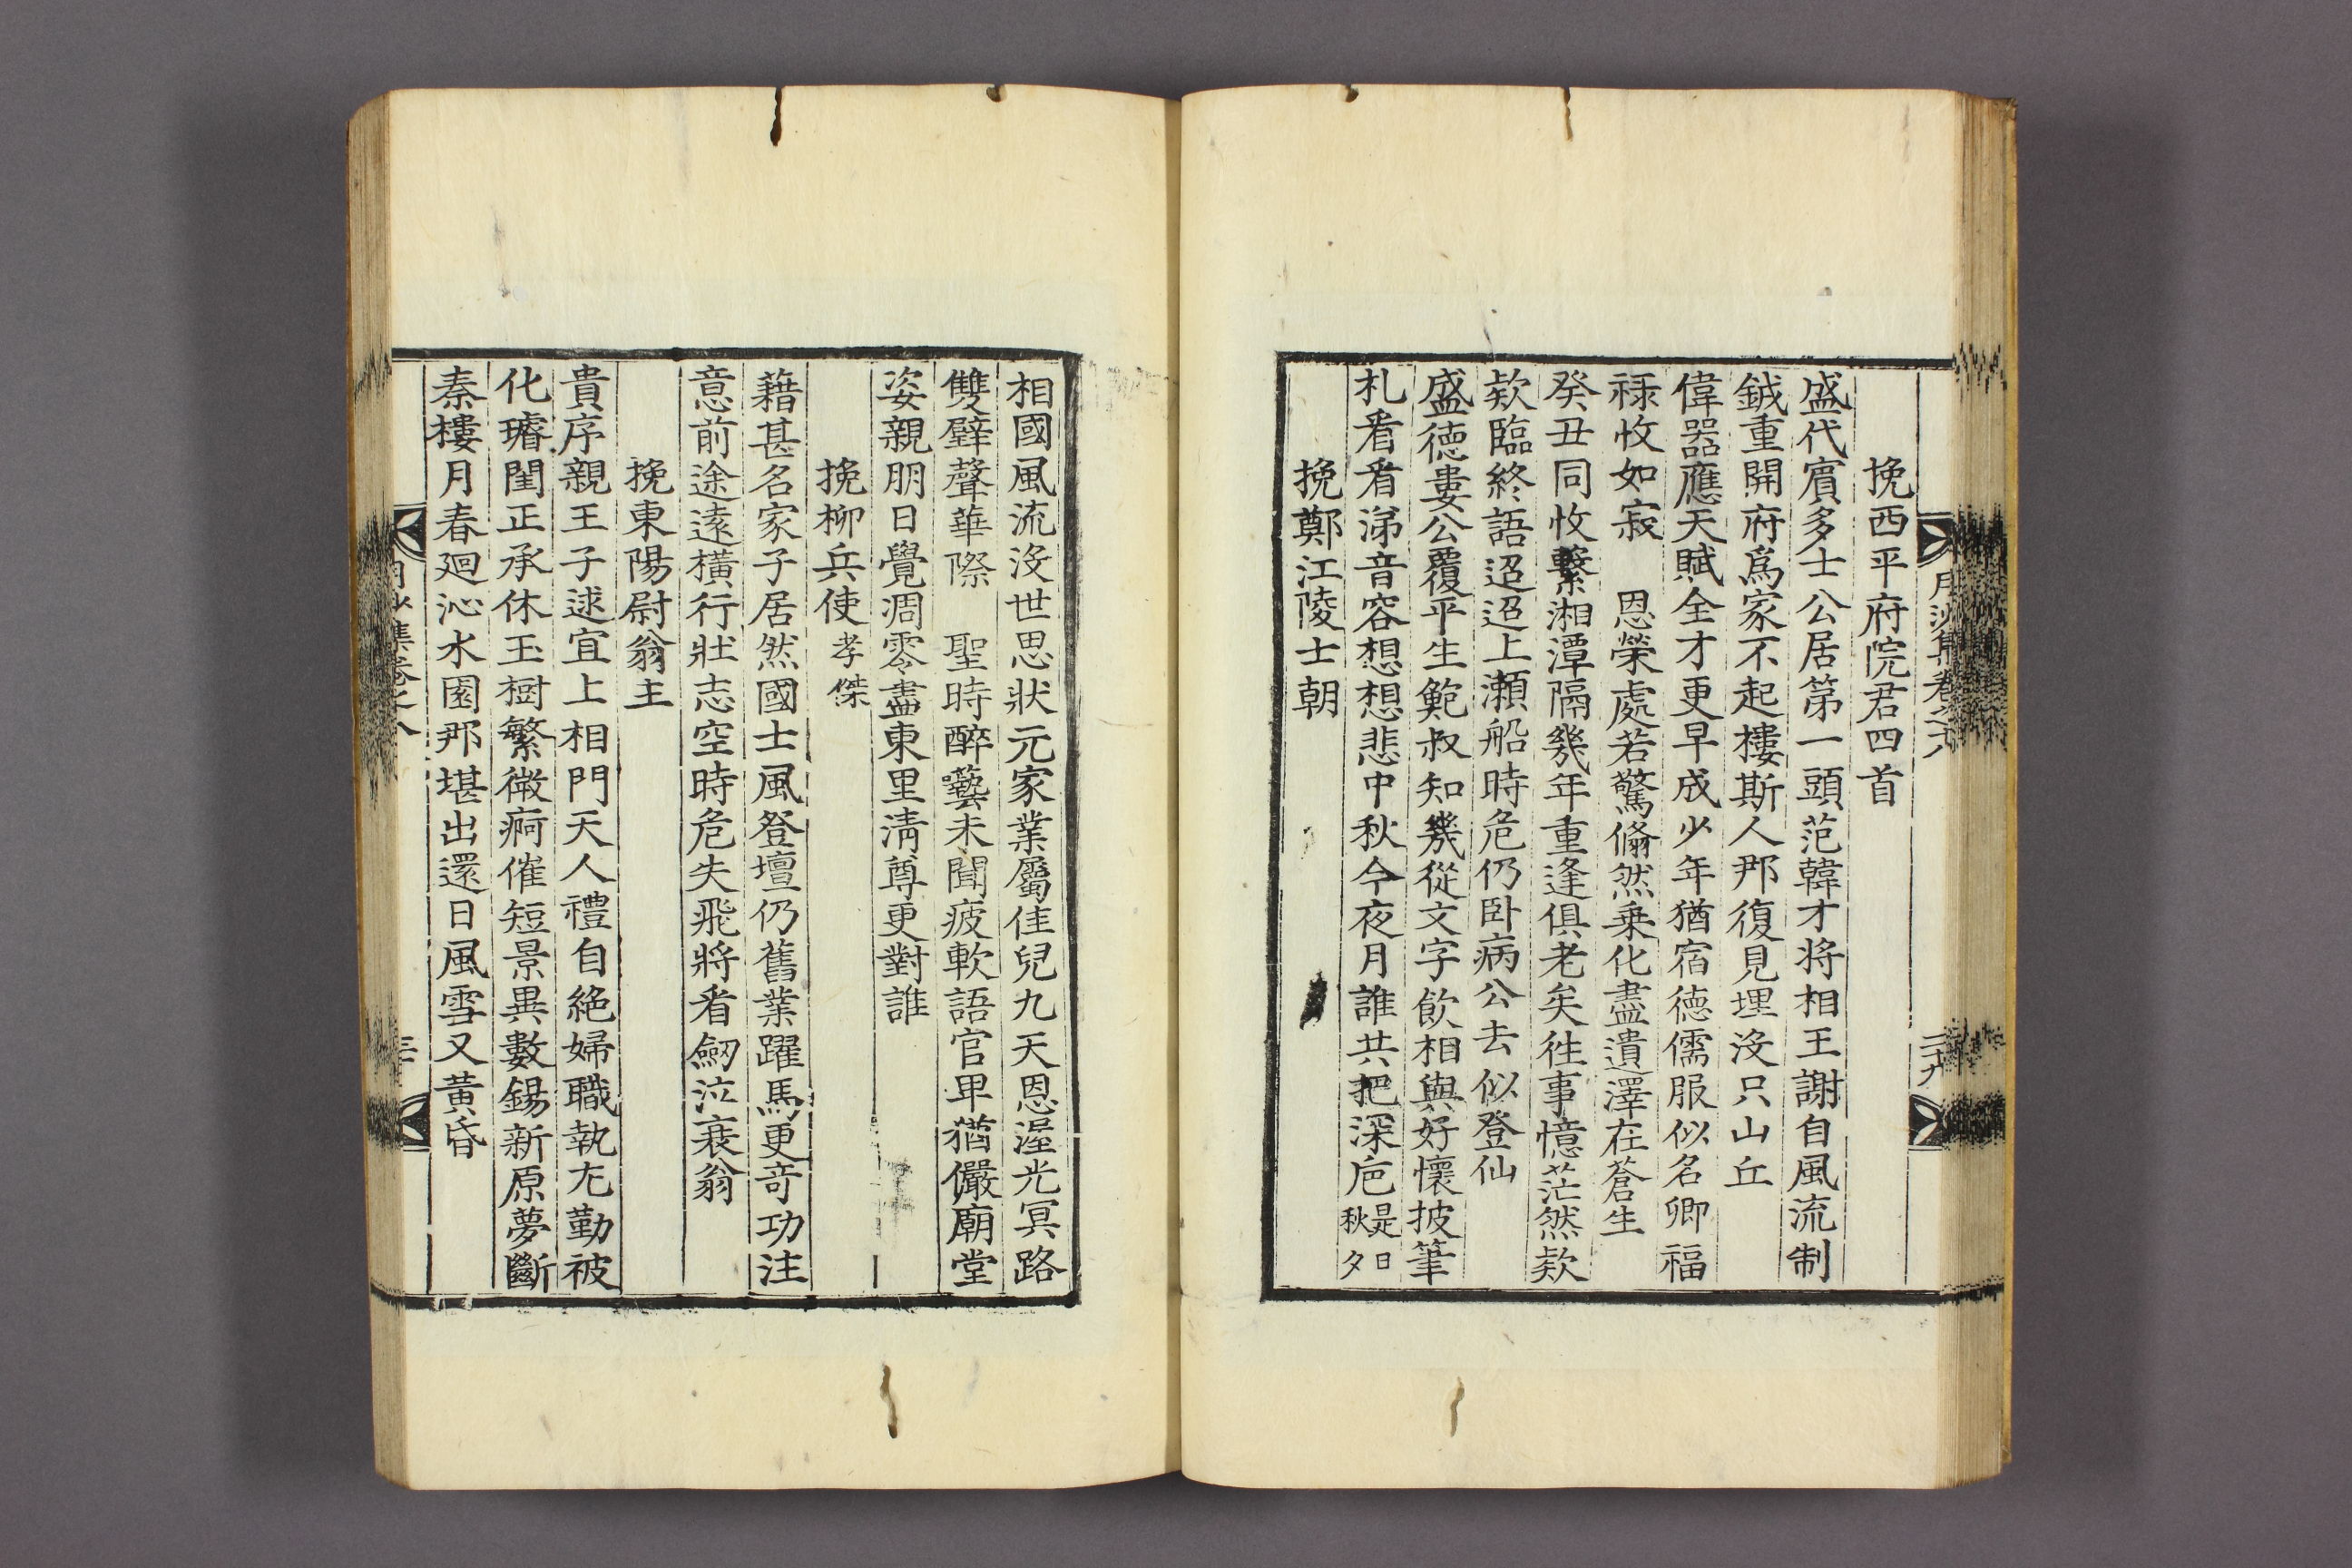 月沙集卷之十八
二十九
挽西平府院君四首
盛代賓多士公居第一頭范韓才將相王謝自風流制
鉞重開府爲家不起樓斯人那復見埋沒只山丘
偉器應天賦全才更早成少年猶宿德儒服似名卿福
祿收如寂　恩榮處若驚翛然乘化盡遺澤在蒼生
癸丑同收繫湘潭隔幾年重逢俱老矣徃事憶茫然欵
欵臨終語迢迢上瀬船時危仍卧病公去似登仙
盛德婁公覆平生鮑叔知幾從文字飮相與好懷披筆
札看看涕音容想想悲中秋今夜月誰共把深巵是日秋夕
挽鄭江陵士朝
相國風流沒世思狀元家業屬佳兒九天恩渥光冥路
雙璧聲華際　聖時醉囈未聞疲軟語官卑猶儼廟堂
姿親朋日覺凋零盡東里淸尊更對誰
挽柳兵使孝傑
藉甚名家子居然國士風登壇仍舊業躍馬更奇功注
意前途遠橫行壯志空時危失飛將看劒泣衰翁
挽東陽尉翁主
貴序親王子逑宜上相門天人禮自絶婦職執尤勤被
化璿閨正承休玉樹繁微痾催短景異數錫新原夢斷
秦樓月春廻沁水園那堪出還日風雪又黃昏
月沙集卷之八
三十